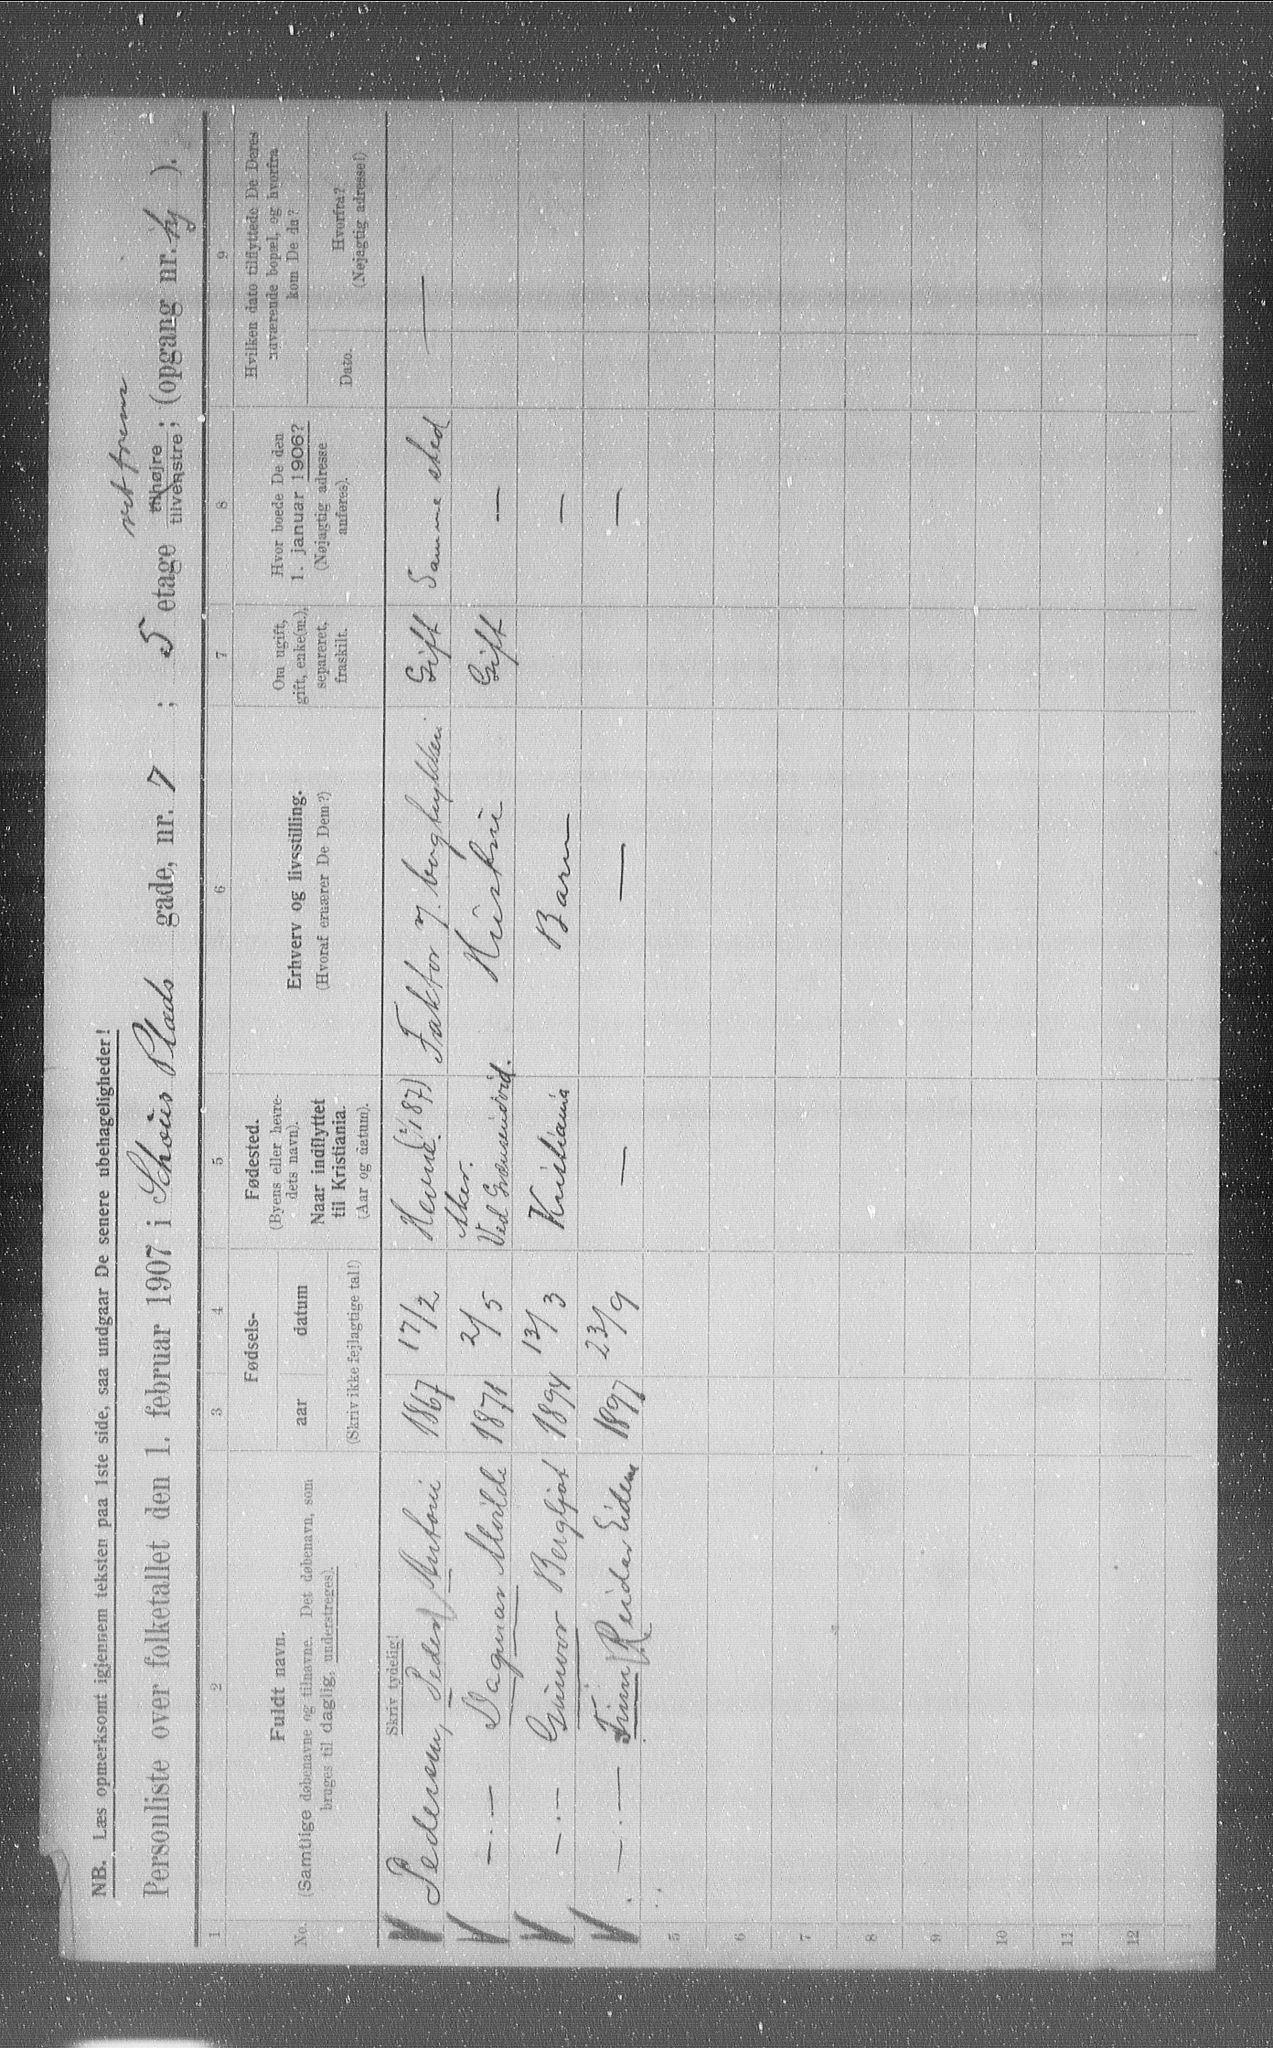 NB. Læs opmerksomt igjennem teksten paa 1ste side, saa undgaar De senere ubehageligheder!
ret frem
Personliste over folketallet den 1. februar 1907 i Schous Plads gade, nr. 7 ; 5 etage tilhøjre tilvenstre; (opgang nr. ).
1 2 3 4 5 6 7 8 9
No.
Fuldt navn.
(Samtlige døbenavne og tilnavne. Det døbenavn, som
bruges til daglig, understreges).
Fødsels-
aar datum
(Skriv ikke fejlagtige tal!)
Fødested.
(Byens eller herre-
dets navn).
Naar indflyttet
til Kristiania.
(Aar og datum).
Erhverv og livsstilling.
(Hvoraf ernærer De Dem?)
Om ugift,
gift, enke(m.),
separeret,
fraskilt.
Hvor boede De den
1. januar 1906?
(Nøjagtig adresse
anføres).
Hvilken dato tilflyttede De Deres
nuværende bopæl, og hvorfra
kom De da?
Dato.
Hvorfra?
(Nøjagtig adresse!)
Skriv tydelig!
Pedersen, Peder Antoni 1867 17/2 Hevne. Faktor Gift Samme sted —
—.— Dagmar 1871 2/5 Aker. Hustru Gift —
—.— Gunvor Bergljot 1894 13/3 Kristiania Barn —
—.— Finn Reidar 1897 23/9 — — —
5
6
7
8
9
10
11
12